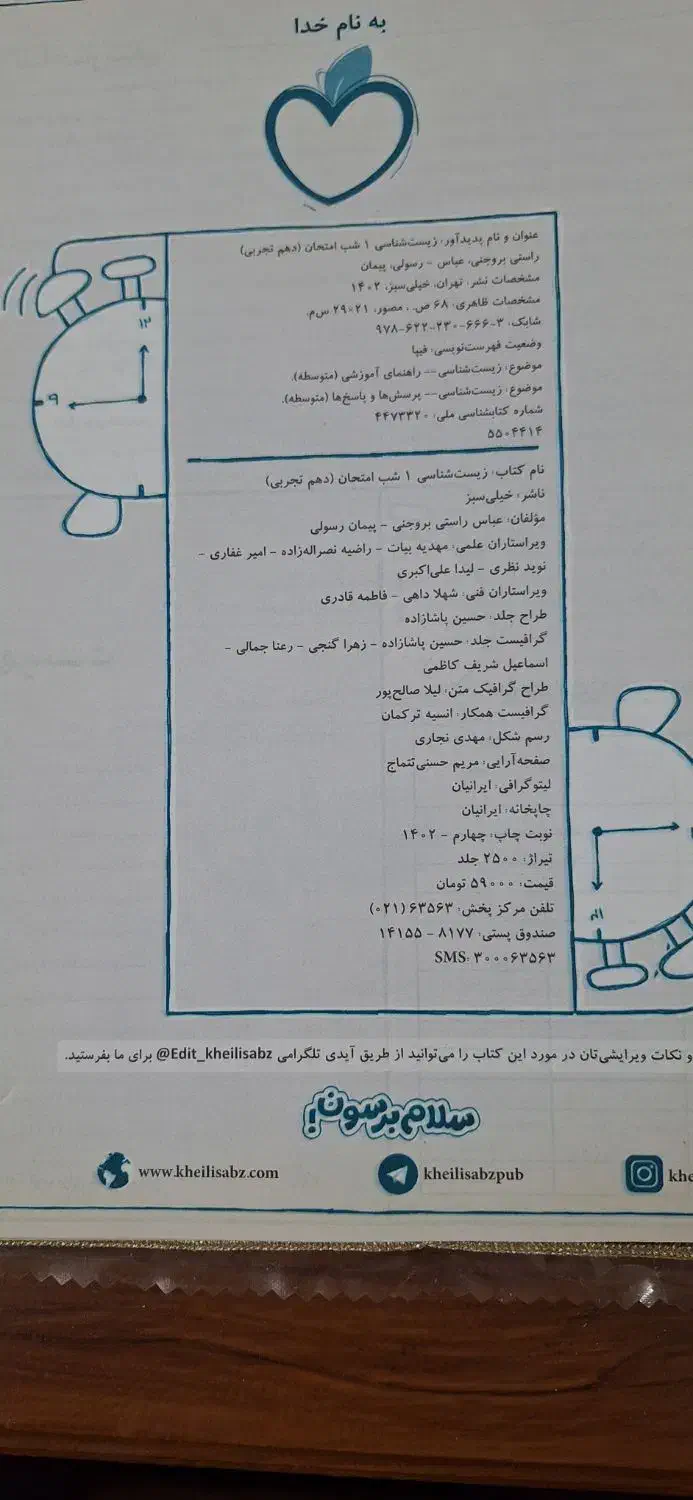 به نام خدا
عنوان و نام پدیدآور: زیست‌شناسی ۱ شب امتحان (دهم تجربی)
راستی بروجنی، عباس - رسولی، پیمان
مشخصات نشر: تهران، خیلی‌سبز، ۱۴۰۲
مشخصات ظاهری: ۶۸ ص. ، مصور، ۲۱×۲۹ س‌م.
شابک: ۳-۶۶۶-۲۳۰-۶۲۲-۹۷۸
وضعیت فهرست‌نویسی: فیپا
موضوع: زیست‌شناسی -- راهنمای آموزشی (متوسطه).
موضوع: زیست‌شناسی -- پرسش‌ها و پاسخ‌ها (متوسطه).
شماره کتابشناسی ملی: ۴۴۷۳۳۲۰
۵۵۰۴۴۱۴
نام کتاب: زیست‌شناسی ۱ شب امتحان (دهم تجربی)
ناشر: خیلی‌سبز
مؤلفان: عباس راستی بروجنی - پیمان رسولی
ویراستاران علمی: مهدیه بیات - راضیه نصراله‌زاده - امیر غفاری -
نوید نظری - لیدا علی‌اکبری
ویراستاران فنی: شهلا داهی - فاطمه قادری
طراح جلد: حسین پاشازاده
گرافیست جلد: حسین پاشازاده - زهرا گنجی - رعنا جمالی -
اسماعیل شریف کاظمی
طراح گرافیک متن: لیلا صالح‌پور
گرافیست همکار: انسیه ترکمان
رسم شکل: مهدی نجاری
صفحه‌آرایی: مریم حسنی‌تتماج
لیتوگرافی: ایرانیان
چاپخانه: ایرانیان
نوبت چاپ: چهارم - ۱۴۰۲
تیراژ: ۲۵۰۰ جلد
قیمت: ۵۹۰۰۰ تومان
تلفن مرکز پخش: ۶۳۵۶۳ (۰۲۱)
صندوق پستی: ۸۱۷۷ - ۱۴۱۵۵
SMS: ۳۰۰۰۶۳۵۶۳
۱۲
۹
و نکات ویرایشی‌تان در مورد این کتاب را می‌توانید از طریق آیدی تلگرامی @Edit_kheilisabz برای ما بفرستید.
سلام برسون!
www.kheilisabz.com
kheilisabzpub
khe